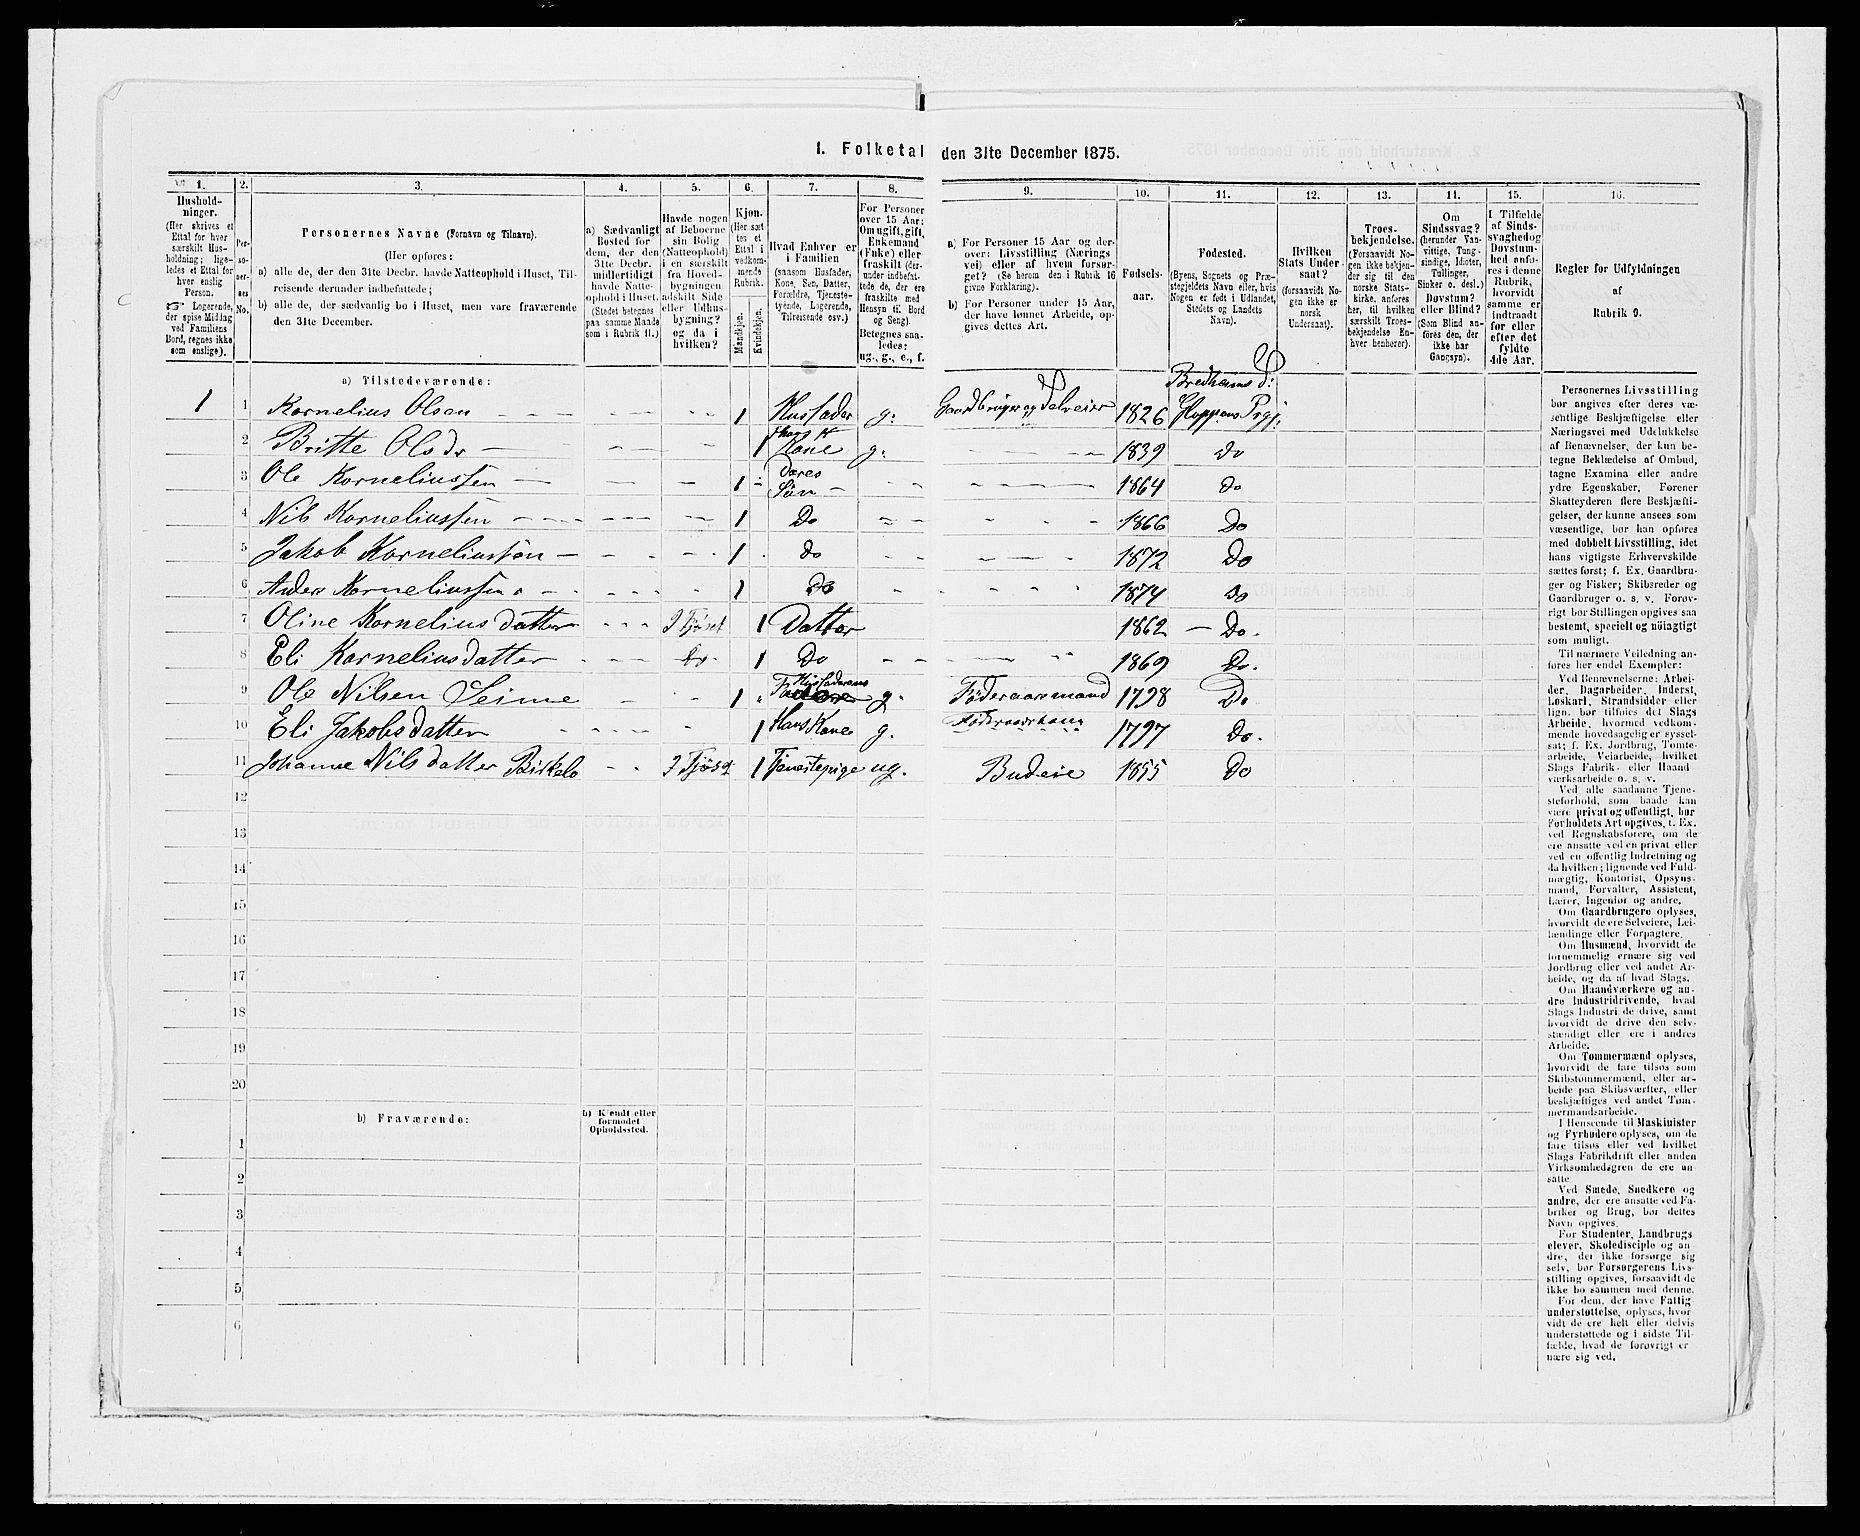 1. Folketal den 31te December 1875.
1. 2. 3. 4. 5. 6. 7. 8. 9. 10. 11. 12. 13. 14. 15. 16.
Husholdninger.
(Her skrives et
Ettal for hver
særskilt Hus-
holdning; lige-
ledes et Ettal for
hver enslig
Person.
Logerende,
der spise Middag
ved Familiens
Bord, regnes ikke
som enslige).
Per-
so-
ner-
nes
No.
Personernes Navne (Fornavn og Tilnavn).
(Her opføres:
a) alle de, der den 31te Decbr. havde Natteophold i Huset, Til-
reisende derunder indbefattede;
b) alle de, der sædvanlig bo i Huset, men vare fraværende
den 31te December.
a) Sædvanligt
Bosted for
dem, der den
31te Decbr.
midlertidigt
havde Natte-
ophold i Huset.
(Stedet betegnes
paa samme Maade
som i Rubrik 11.)
Havde nogen
af Beboerne
sin Bolig
(Natteophold)
i en særskilt
fra Hoved-
bygningen
adskilt Side
eller Udhus-
bygning?
og da i
hvilken?
Kjøn.
(Her sæt-
tes et
Ettal i
vedkom-
mende
Rubrik.
Mandkjøn.
Kvindekjøn.
Hvad Enhver er
i Familien
(saasom Husfader,
Kone, Søn, Datter,
Forældre, Tjeneste-
tyende, Logerende,
Tilreisende osv.)
For Personer
over 15 Aar:
Om ugift, gift,
Enkemand
(Enke) eller
fraskilt (der-
under indbefat-
tede, der ere
fraskilte med
Hensyn til Bord
og Seng).
Betegnes saa-
ledes:
ug., g., e., f.
a) For Personer 15 Aar og der-
over: Livsstilling (Nærings
vei) eller af hvem forsør-
get? (Se herom den i Rubrik 16
givne Forklaring).
b) For Personer under 15 Aar,
der have lønnet Arbeide, op-
gives dettes Art.
Fødsels-
aar.
Fødested.
(Byens, Sognets og Præ-
stegjeldets Navn eller, hvis
Nogen er født i Udlandet,
Stedets og Landets
Navn).
Hvilken
Stats Under-
saat?
(forsaavidt No-
gen ikke er
norsk
Undersaat).
Troes-
bekjendelse.
(Forsaavidt No-
gen ikke bekjen-
der sig til den
norske Stats-
kirke, anføres
her, til hvilken
særskilt Troes-
bekjendelse En-
hver henhører).
Om
Sindssvag?
(herunder Van-
vittige, Tung-
sindige, Idioter,
Tullinger,
Sinker o. desl.)
Døvstum?
eller Blind?
(Som Blind an-
føres den, der
ikke har
Gangsyn).
I Tilfælde
af Sinds-
svaghed og
Døvstum-
hed anfø-
res i denne
Rubrik,
hvorvidt
samme er
indtraadt
før eller
efter det
fyldte
4de Aar.
Regler for Udfyldningen
af
Rubrik 9.
a) Tilstedeværende:
Bredheims S:
1 1 Kornelius Olsen 1 Husfader g: Gaardbruger og Selveier 1826 Gloppens Prgj.
2 Britte Olsdr 1 hans Kone g: 1839 Do
3 Ole Korneliussen 1 Deres Søn 1864 Do
4 Nils Korneliussen 1 Do 1866 Do
5 Jakob Korneliussøn 1 Do 1872 Do
6 Anders Korneliussen 1 Do 1874 Do
7 Oline Korneliusdatter I Fjöset 1 Datter 1862 Do.
8 Eli Korneliusdatter Do. 1 Do 1869 Do.
9 Ole Nilsen Seime 1 Husfaderens Fader g. Föderaasmand 1798 Do
10 Eli Jakobsdatter 1 Hans Kone g. 1797 Do.
11 Johanne Nilsdatter Birkelo I Fjöset 1 Tjenestepige ug. Budeie 1855 Do
12
13
14
15
16
17
18
19
20
b) Fraværende:
b) Kjendt eller
formodet
Opholdssted.
1
2
3
4
5
6
Personernes Livsstilling
bør angives efter deres væ-
sentlige Beskjæftigelse eller
Næringsvei med Udelukkelse
af Benævnelser, der kun be-
tegne Beklædelse af Ombud,
tagne Examina eller andre
ydre Egenskaber. Forener
Skatteyderen flere Beskjæfti-
gelser, der kunne ansees som
væsentlige, bør han opføres
med dobbelt Livsstilling, idet
hans vigtigste Erhvervskilde
sættes først; f. Ex. Gaardbru-
ger og Fisker; Skibsreder og
Gaardbruger o. s. v. Forøv-
rigt bør Stillingen opgives saa
bestemt, specielt og nöiagtigt
som muligt.
Til nærmere Veiledning an-
føres her endel Exempler:
Ved Benævnelserne: Arbei-
der, Dagarbeider, Inderst,
Løskarl, Strandsidder eller
lign. bør tilføies det Slags
Arbeide, hvormed vedkom-
mende hovedsagelig er syssel-
sat; f. Ex. Jordbrug, Tomte-
arbeide, Veiarbeide, hvilket
Slags Fabrik- eller Haand
værksarbeide o. s. v.
Ved alle saadanne Tjene-
steforhold, som baade kan
være privat og offentligt, bør
Forholdets Art opgives, t. Ex.
ved Regnskabsførere, om de
ere ansatte ved en privat eller
ved en offentlig Indretning og
da hvilken; lignende ved Fuld-
mægtig, Kontorist, Opsyns-
mand, Forvalter, Assistent,
Lærer, Ingeniør og andre.
Om Gaardbrugere oplyses,
hvorvidt de ere Selveiere, Lei-
lændinge eller Forpagtere.
Om Husmænd, hvorvidt de
fornemmelig ernære sig ved
Jordbrug eller ved andet Ar-
beide, og da af hvad Slags.
Om Haandværkere og an-
dre Industridrivende, hvad
Slags Industri de drive, samt
hvorvidt de drive den selv-
stændigt eller ere i andres
Arbeide.
Om Tømmermænd oplyses,
hvorvidt de fare tilsøs som
Skibstømmermænd, eller ar-
beide paa Skibsværfter, eller
beskjæftiges ved andet Tøm-
mermandsarbeide.
I Henseende til Maskinister
og Fyrbødere oplyses, om de
fare tilsøs eller ved hvilket
Slags Fabrikdrift eller anden
Virksomhedsgren de ere an-
satte
Ved Smede, Snedkere og
andre, der ere ansatte ved Fa-
briker og Brug, bør dettes
Navn opgives.
For Studenter, Landbrugs
elever, Skoledisciple og an
dre, der ikke forsørge sig
selv, bør Forsørgerens Livs-
stilling opgives, forsaavidt de
ikke bo sammen med denne.
For dem, der have Fattig
understøttelse, oplyses, hvor
vidt de ere helt eller delvis
understøttede og i sidste Til-
fælde, hvad de forøvrigt er
nære sig ved.